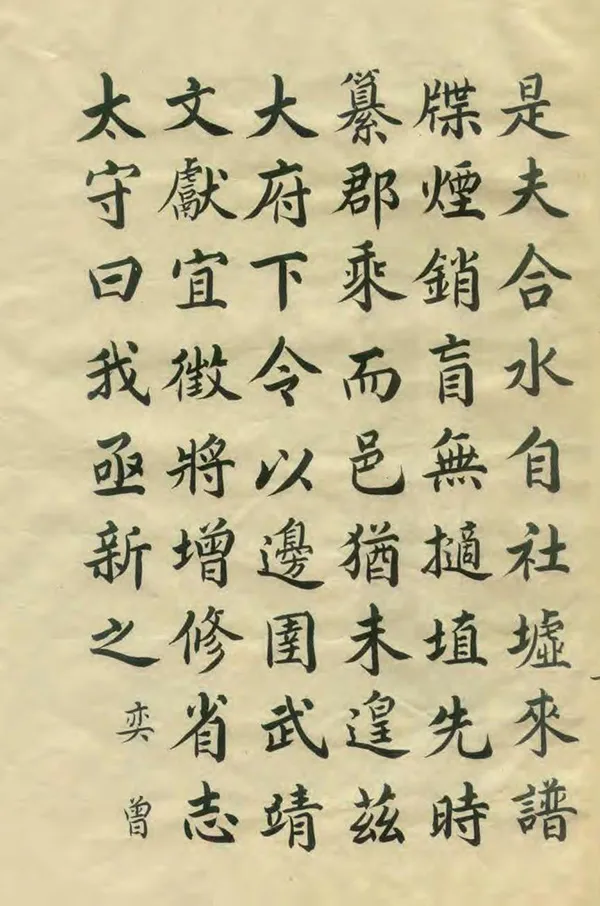 是夫合水自社墟來譜
牒煙銷盲無擿埴先時
纂郡乘而邑猶未遑茲
大府下令以邊圉武靖
文獻宜徵將增修省志
太守曰我亟新之
奕曾